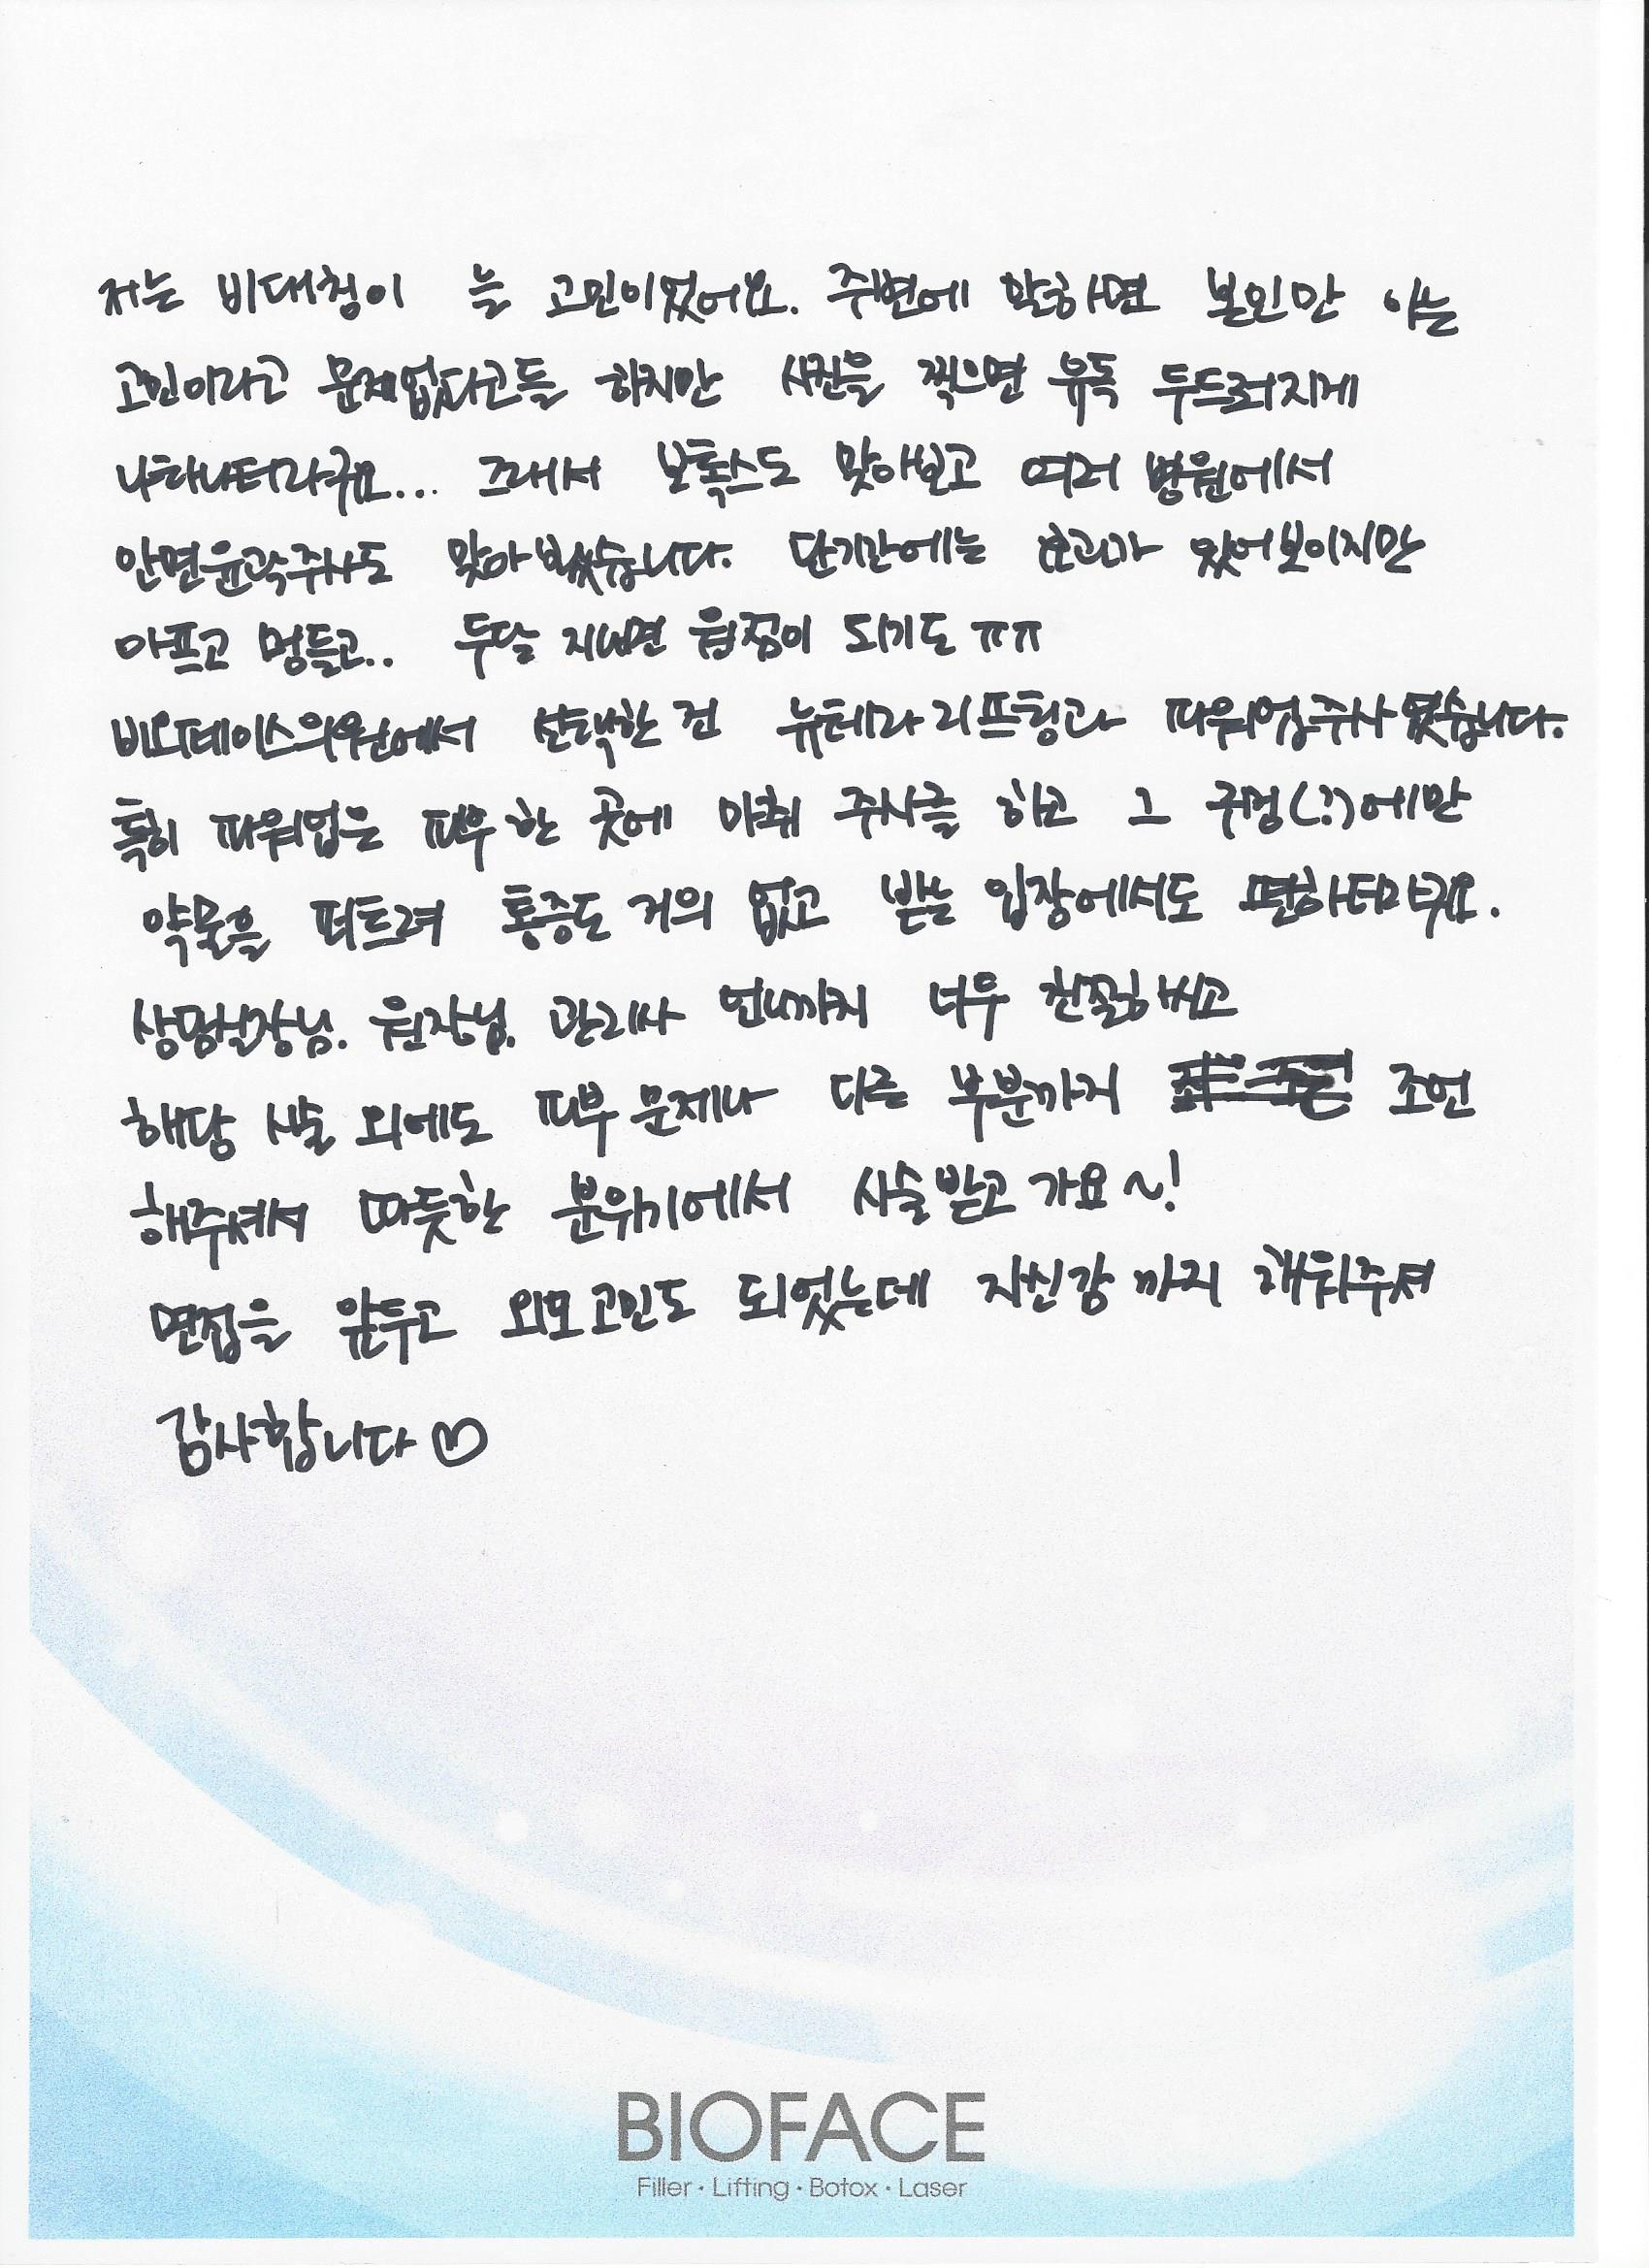 저는 비대칭이 늘 고민이었어요. 주변에 말하면 본인만 아는
고민이라고 문제없다고들 하지만 사진을 찍으면 유독 두드러지게
나타나더라구요... 그래서 보톡스도 맞아보고 여러 병원에서
안면윤곽주사도 맞아봤습니다. 단기간에는 효과가 있어보이지만
아프고 멍들고.. 두달 지나면 원점이 되기도 ㅠㅠ
비오페이스의원에서 선택한 건 뉴테라리프팅과 파워업주사였습니다.
특히 파워업은 필요한 곳에 마취 주사를 하고 그 구멍(?)에만
약물을 퍼트려 통증도 거의 없고 받는 입장에서도 편하더라구요.
상명실장님. 원장님. 관리사 언니까지 너무 친절하시고
해당 시술 외에도 피부 문제나 다른 부분까지 조언
해주셔서 따뜻한 분위기에서 시술받고 가요~!
면접을 앞두고 외모고민도 되었는데 자신감까지 채워주셔
감사합니다♡
BIOFACE
Filler · Lifting · Botox · Laser